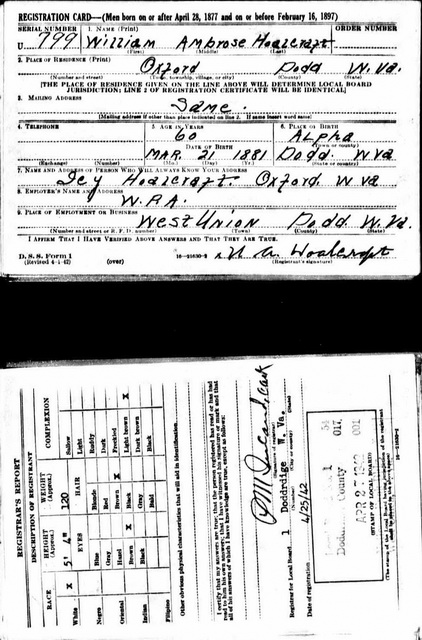 REGISTRATION CARD—(Men born on or after April 28, 1877 and on or before February 16, 1897)
SERIAL NUMBER 1. NAME (Print) ORDER NUMBER
U 799 William Ambrose Hoalcraft
(First) (Middle) (Last)
2. PLACE OF RESIDENCE (Print)
Oxford Dodd W.Va.
(Number and street) (Town, township, village, or city) (County) (State)
[THE PLACE OF RESIDENCE GIVEN ON THE LINE ABOVE WILL DETERMINE LOCAL BOARD
JURISDICTION; LINE 2 OF REGISTRATION CERTIFICATE WILL BE IDENTICAL]
3. MAILING ADDRESS
Same.
(Mailing address if other than place indicated on line 2. If same insert word same)
4. TELEPHONE 5. AGE IN YEARS 6. PLACE OF BIRTH
60 Alpha
DATE OF BIRTH (Town or county)
Mar. 21 1881 Dodd. W Va
(Exchange) (Number) (Mo.) (Day) (Yr.) (State or country)
7. NAME AND ADDRESS OF PERSON WHO WILL ALWAYS KNOW YOUR ADDRESS
Icy Hoalcraft Oxford. W Va
8. EMPLOYER'S NAME AND ADDRESS
W.P.A.
9. PLACE OF EMPLOYMENT OR BUSINESS
West Union Dodd W. Va.
(Number and street or R. F. D. number) (Town) (County) (State)
I AFFIRM THAT I HAVE VERIFIED ABOVE ANSWERS AND THAT THEY ARE TRUE.
D. S. S. Form 1
(Revised 4-1-42) (over) 16—21630-2 (Registrant's signature)
REGISTRAR'S REPORT
DESCRIPTION OF REGISTRANT
RACE HEIGHT (Approx.) WEIGHT (Approx.) COMPLEXION
White X 5' 4" 120 Sallow
EYES HAIR Light
Negro Blue Blonde Ruddy
Gray Red Dark
Oriental Hazel Brown X Freckled
Brown X Black Light brown X
Indian Black Gray Dark brown
Bald Black
Filipino
Other obvious physical characteristics that will aid in identification
I certify that my answers are true; that the person registered has read or has had
read to him his own answers; that I have witnessed his signature or mark and that
all of his answers of which I have knowledge are true, except as follows:
Registrar for Local Board 1 Doddridge W. Va.
(Number) (City or county) (State)
Date of registration 4/25/42
County 017
APR 27 1942 001
(STAMP OF LOCAL BOARD)